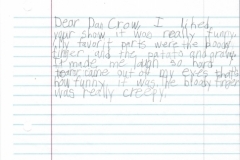 Dear Dan Crow, I liked
your show it was really funny.
My favorit parts were the bloody
finger and the patato and gravy.
It made me laugh so hard
tears came out of my eyes thats
how funny it was. The bloody finger
was really creepy.